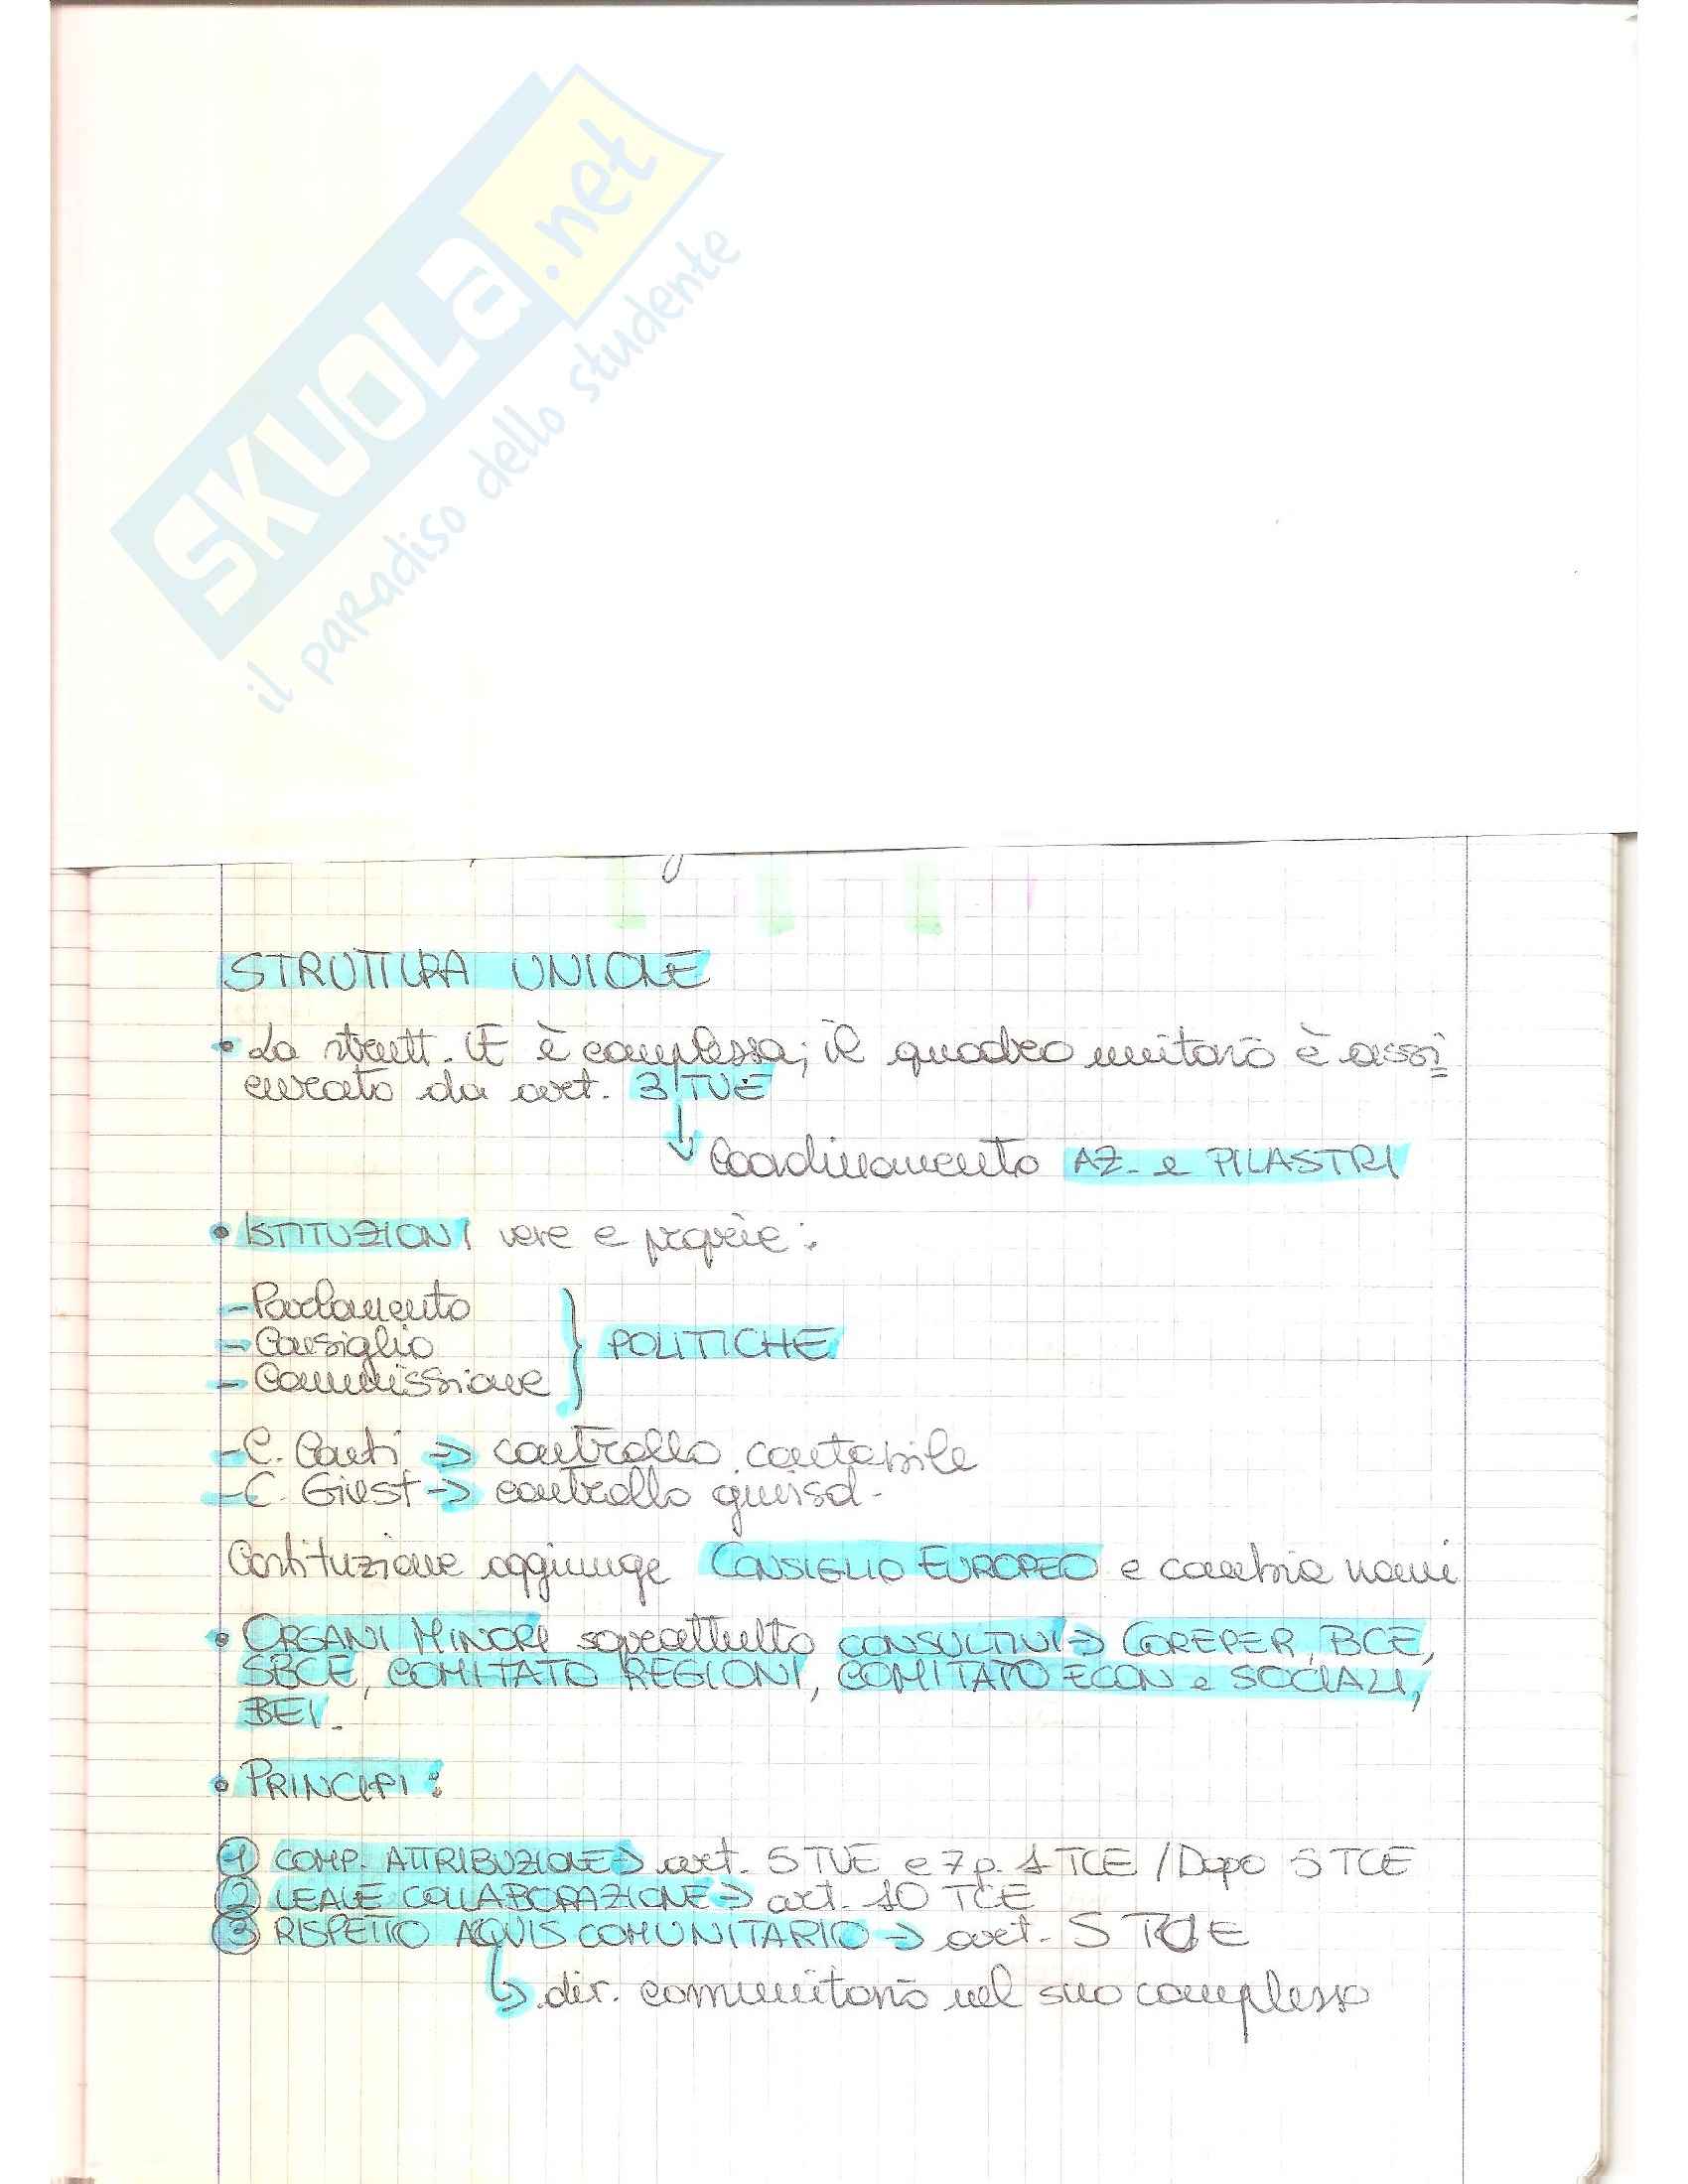 SKUOLA.net
il paradiso dello studente
STRUTTURA UNIONE
• La strutt. UE è complessa; il quadro unitario è assi
curato da art. 3 TUE
↓ Coordinamento AZ. e PILASTRI
• ISTITUZIONI vere e proprie:
- Parlamento
- Consiglio } POLITICHE
- Commissione
- C. Conti → controllo contabile
- C. Giust → controllo giurisd.
Costituzione aggiunge CONSIGLIO EUROPEO e cambia nomi
• ORGANI MINORI soprattutto CONSULTIVI → COREPER, BCE,
SBCE, COMITATO REGIONI, COMITATO ECON e SOCIALI,
BEI.
• PRINCIPI:
1 COMP. ATTRIBUZIONE → art. 5 TUE e 7 p. 1 TCE / Dopo 5 TCE
2 LEALE COLLABORAZIONE → art. 10 TCE
3 RISPETTO ACQUIS COMUNITARIO → art. 5 TCE
↳ dir. comunitario nel suo complesso